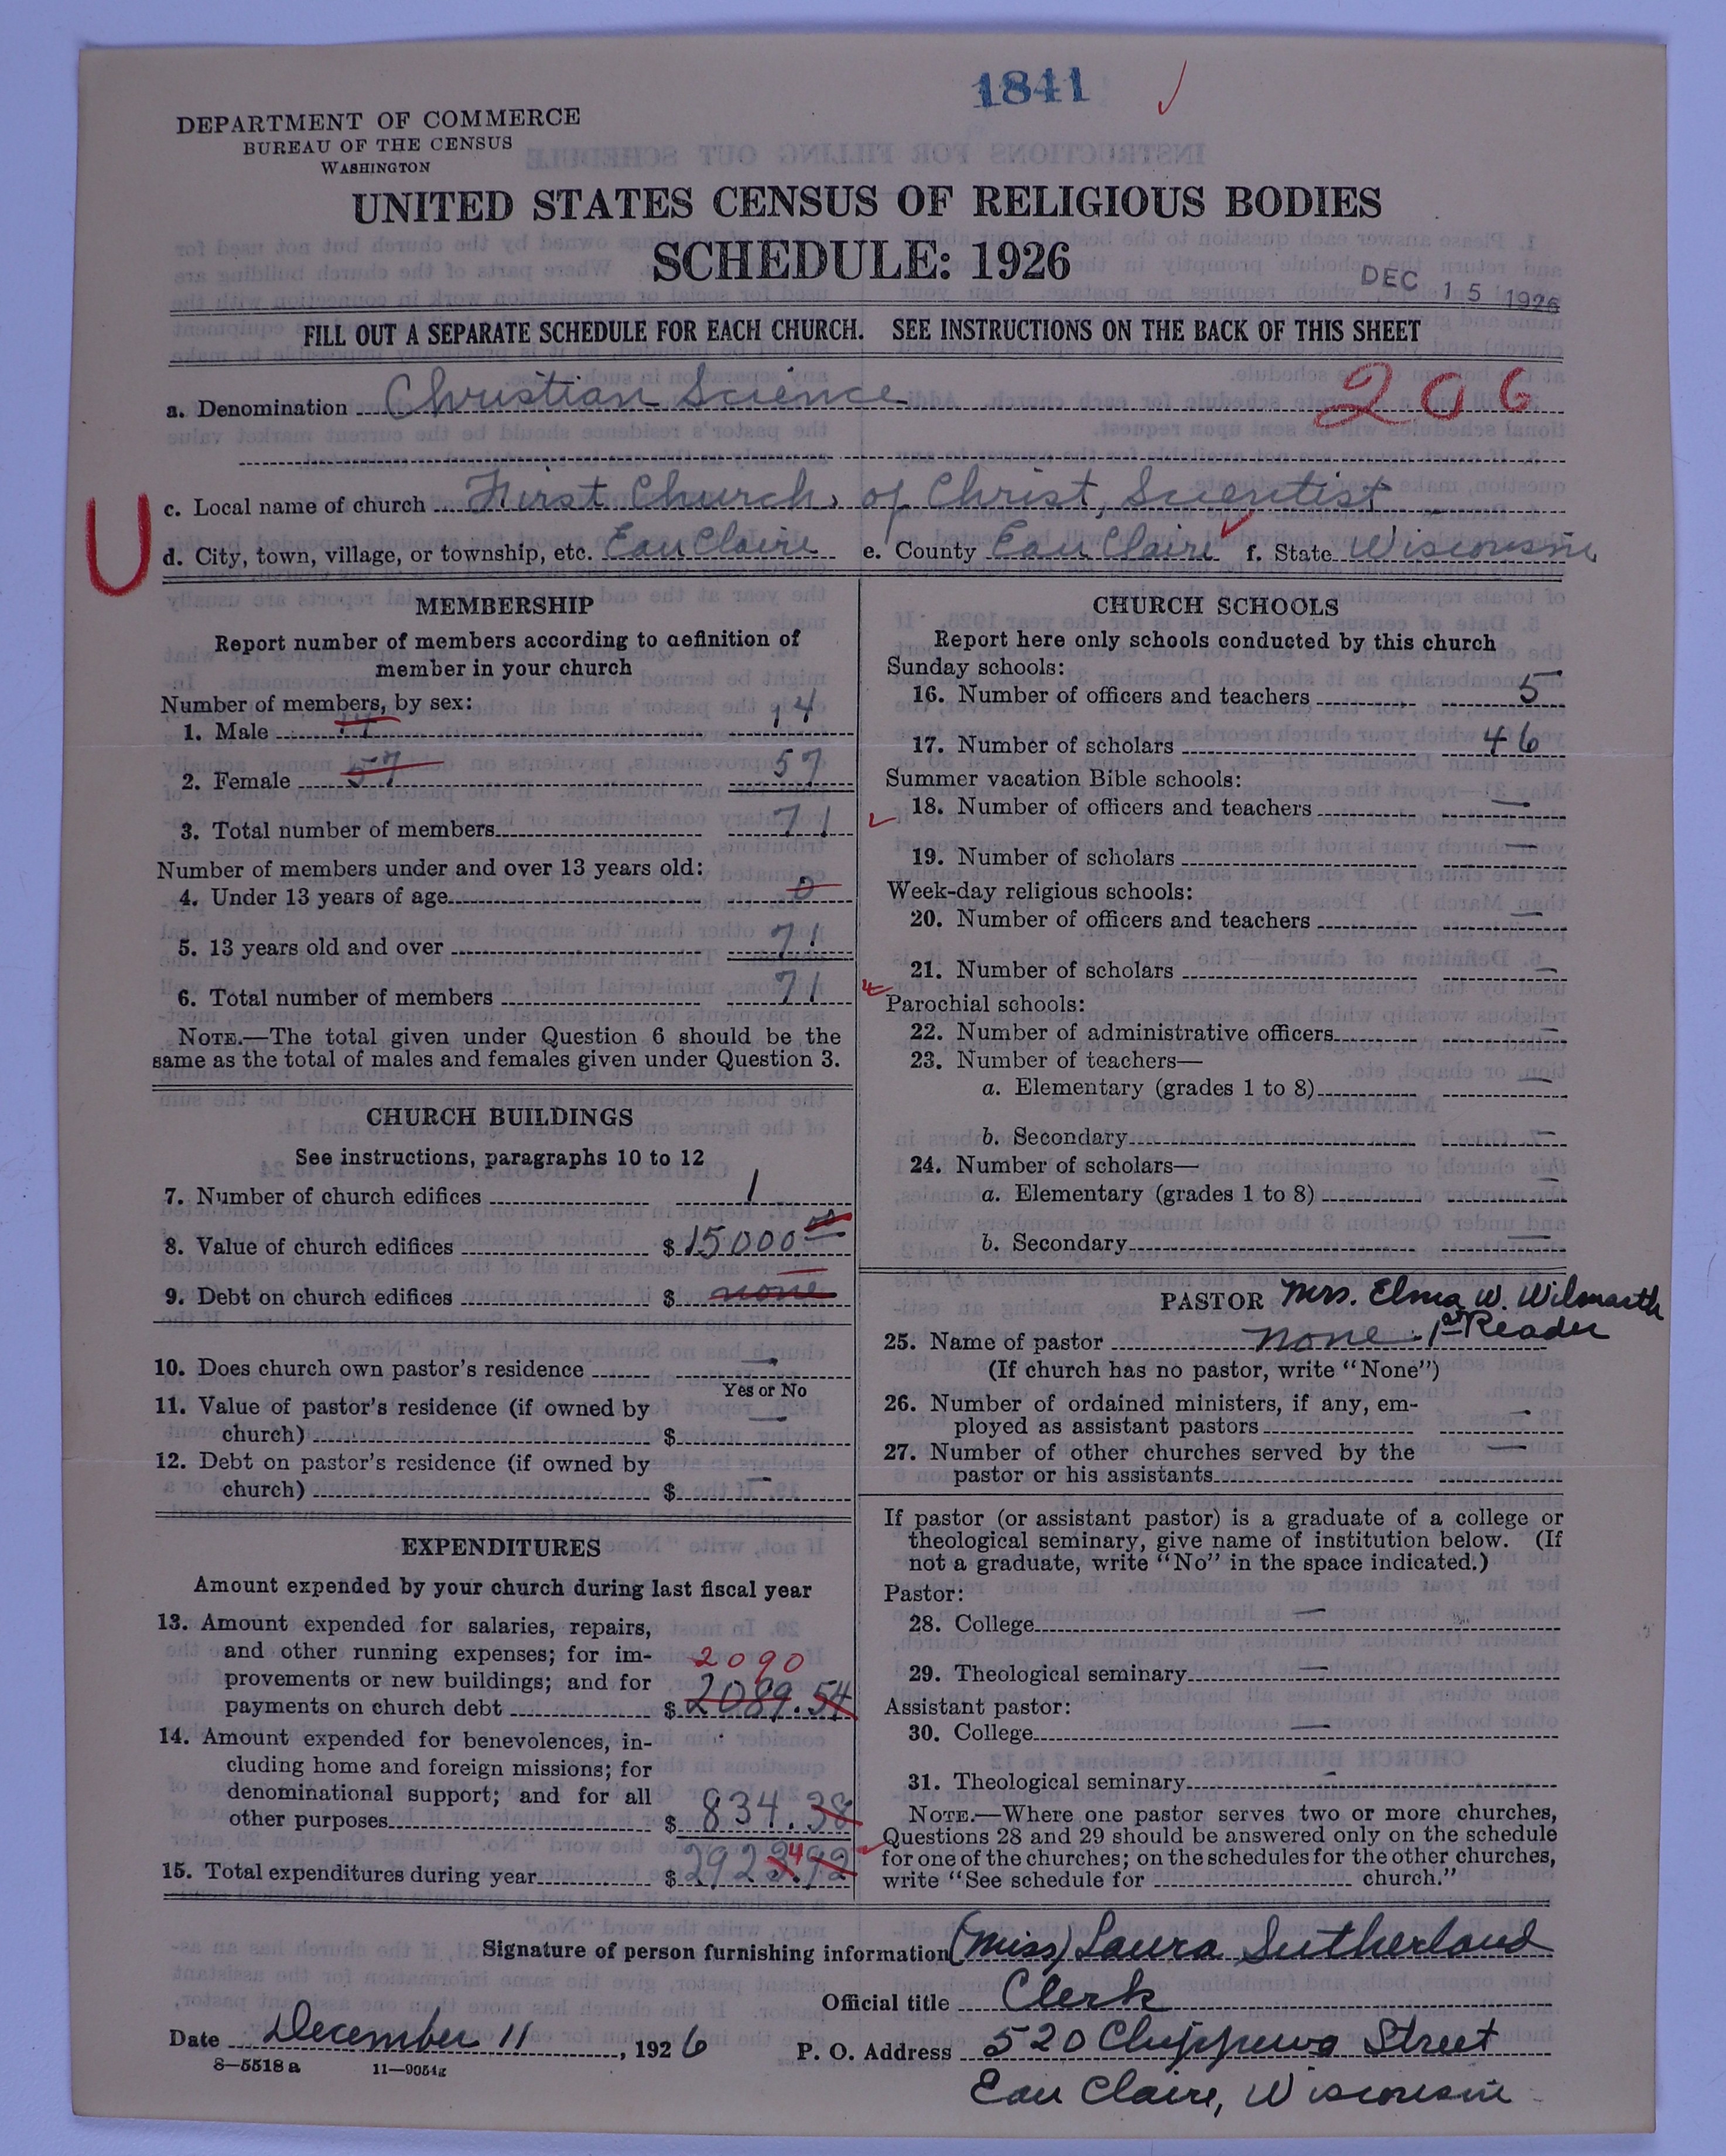 1841
DEPARTMENT OF COMMERCE
BUREAU OF THE CENSUS
WASHINGTON
UNITED STATES CENSUS OF RELIGIOUS BODIES
SCHEDULE: 1926
DEC 15 1926
FILL OUT A SEPARATE SCHEDULE FOR EACH CHURCH. SEE INSTRUCTIONS ON THE BACK OF THIS SHEET
a. Denomination Christian Science 206
U
c. Local name of church First Church, of Christ, Scientist
d. City, town, village, or township, etc. Eau Claire e. County Eau Claire f. State Wisconsin
MEMBERSHIP
Report number of members according to definition of
member in your church
Number of members, by sex:
1. Male 14
2. Female 57 57
3. Total number of members 71
Number of members under and over 13 years old:
4. Under 13 years of age 0
5. 13 years old and over 71
6. Total number of members 71
NOTE.—The total given under Question 6 should be the
same as the total of males and females given under Question 3.
CHURCH BUILDINGS
See instructions, paragraphs 10 to 12
7. Number of church edifices 1
8. Value of church edifices $15000 00
9. Debt on church edifices $ none
10. Does church own pastor's residence —
Yes or No
11. Value of pastor's residence (if owned by
church) $ —
12. Debt on pastor's residence (if owned by
church) $ —
EXPENDITURES
Amount expended by your church during last fiscal year
13. Amount expended for salaries, repairs,
and other running expenses; for im-
provements or new buildings; and for 2090
payments on church debt $ 2089.54
14. Amount expended for benevolences, in-
cluding home and foreign missions; for
denominational support; and for all
other purposes $ 834.38
15. Total expenditures during year $ 2923.92 4
CHURCH SCHOOLS
Report here only schools conducted by this church
Sunday schools:
16. Number of officers and teachers 5
17. Number of scholars 46
Summer vacation Bible schools:
18. Number of officers and teachers —
19. Number of scholars —
Week-day religious schools:
20. Number of officers and teachers —
21. Number of scholars —
Parochial schools:
22. Number of administrative officers —
23. Number of teachers—
a. Elementary (grades 1 to 8) —
b. Secondary —
24. Number of scholars—
a. Elementary (grades 1 to 8) —
b. Secondary —
PASTOR Mrs. Elma W. Wilmarth
25. Name of pastor none. 1st Reader
(If church has no pastor, write "None")
26. Number of ordained ministers, if any, em-
ployed as assistant pastors —
27. Number of other churches served by the —
pastor or his assistants
If pastor (or assistant pastor) is a graduate of a college or
theological seminary, give name of institution below. (If
not a graduate, write "No" in the space indicated.)
Pastor:
28. College —
29. Theological seminary —
Assistant pastor:
30. College —
31. Theological seminary —
NOTE.—Where one pastor serves two or more churches,
Questions 28 and 29 should be answered only on the schedule
for one of the churches; on the schedules for the other churches,
write "See schedule for church."
Signature of person furnishing information (Miss) Laura Sutherland
Official title Clerk
Date December 11, 1926 P. O. Address 520 Chippewa Street
8—5518a 11—9051g
Eau Claire, Wisconsin